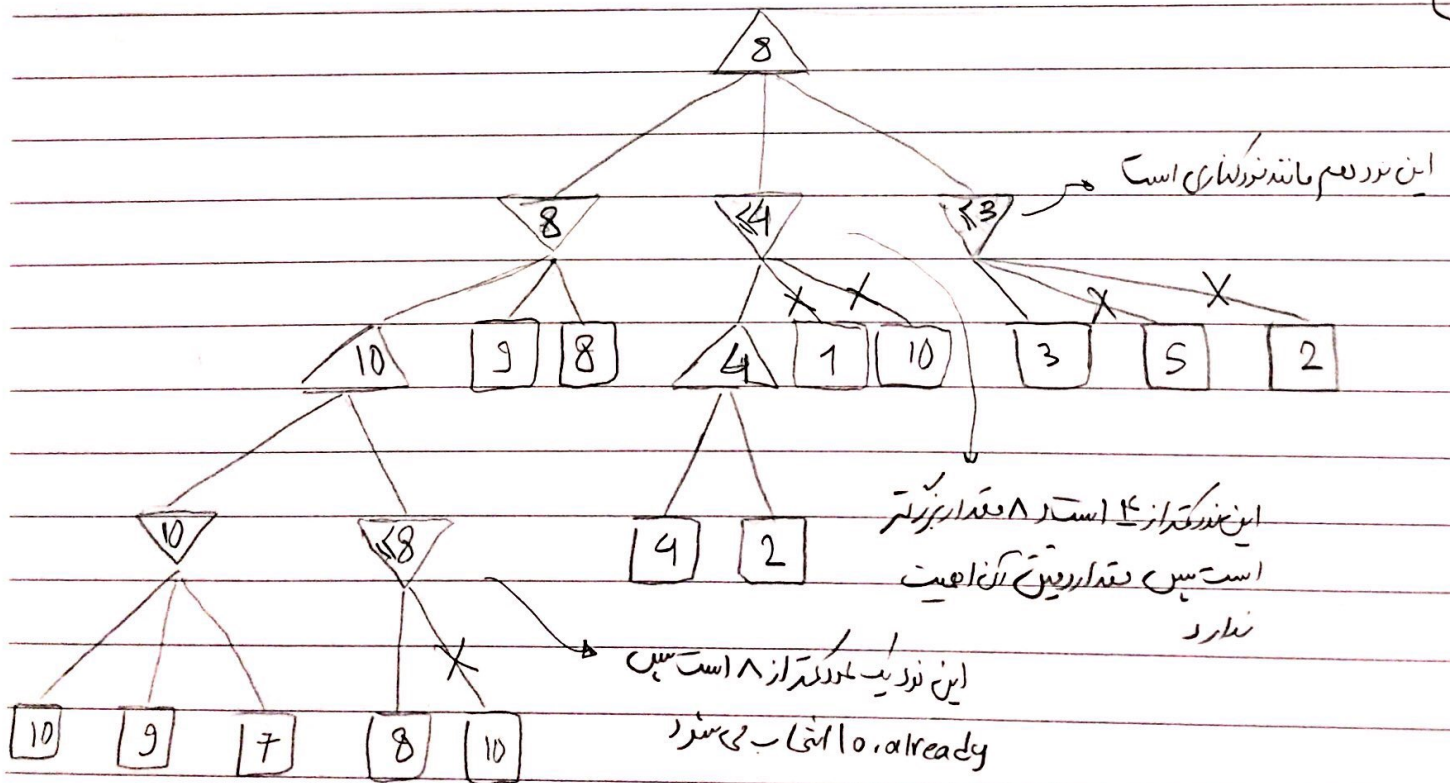 8
8 ≤4 ≤3
این نود هم مانند نود کناری است
10 9 8 4 1 10 3 5 2
10 ≤8 4 2
این نود کمتر از ۴ است و ۸ مقدار بزرگتر
است پس مقدار دقیق آن اهمیت
ندارد
این نود یک عدد کمتر از ۸ است پس
10، already انتخاب می شود
10 9 7 8 10